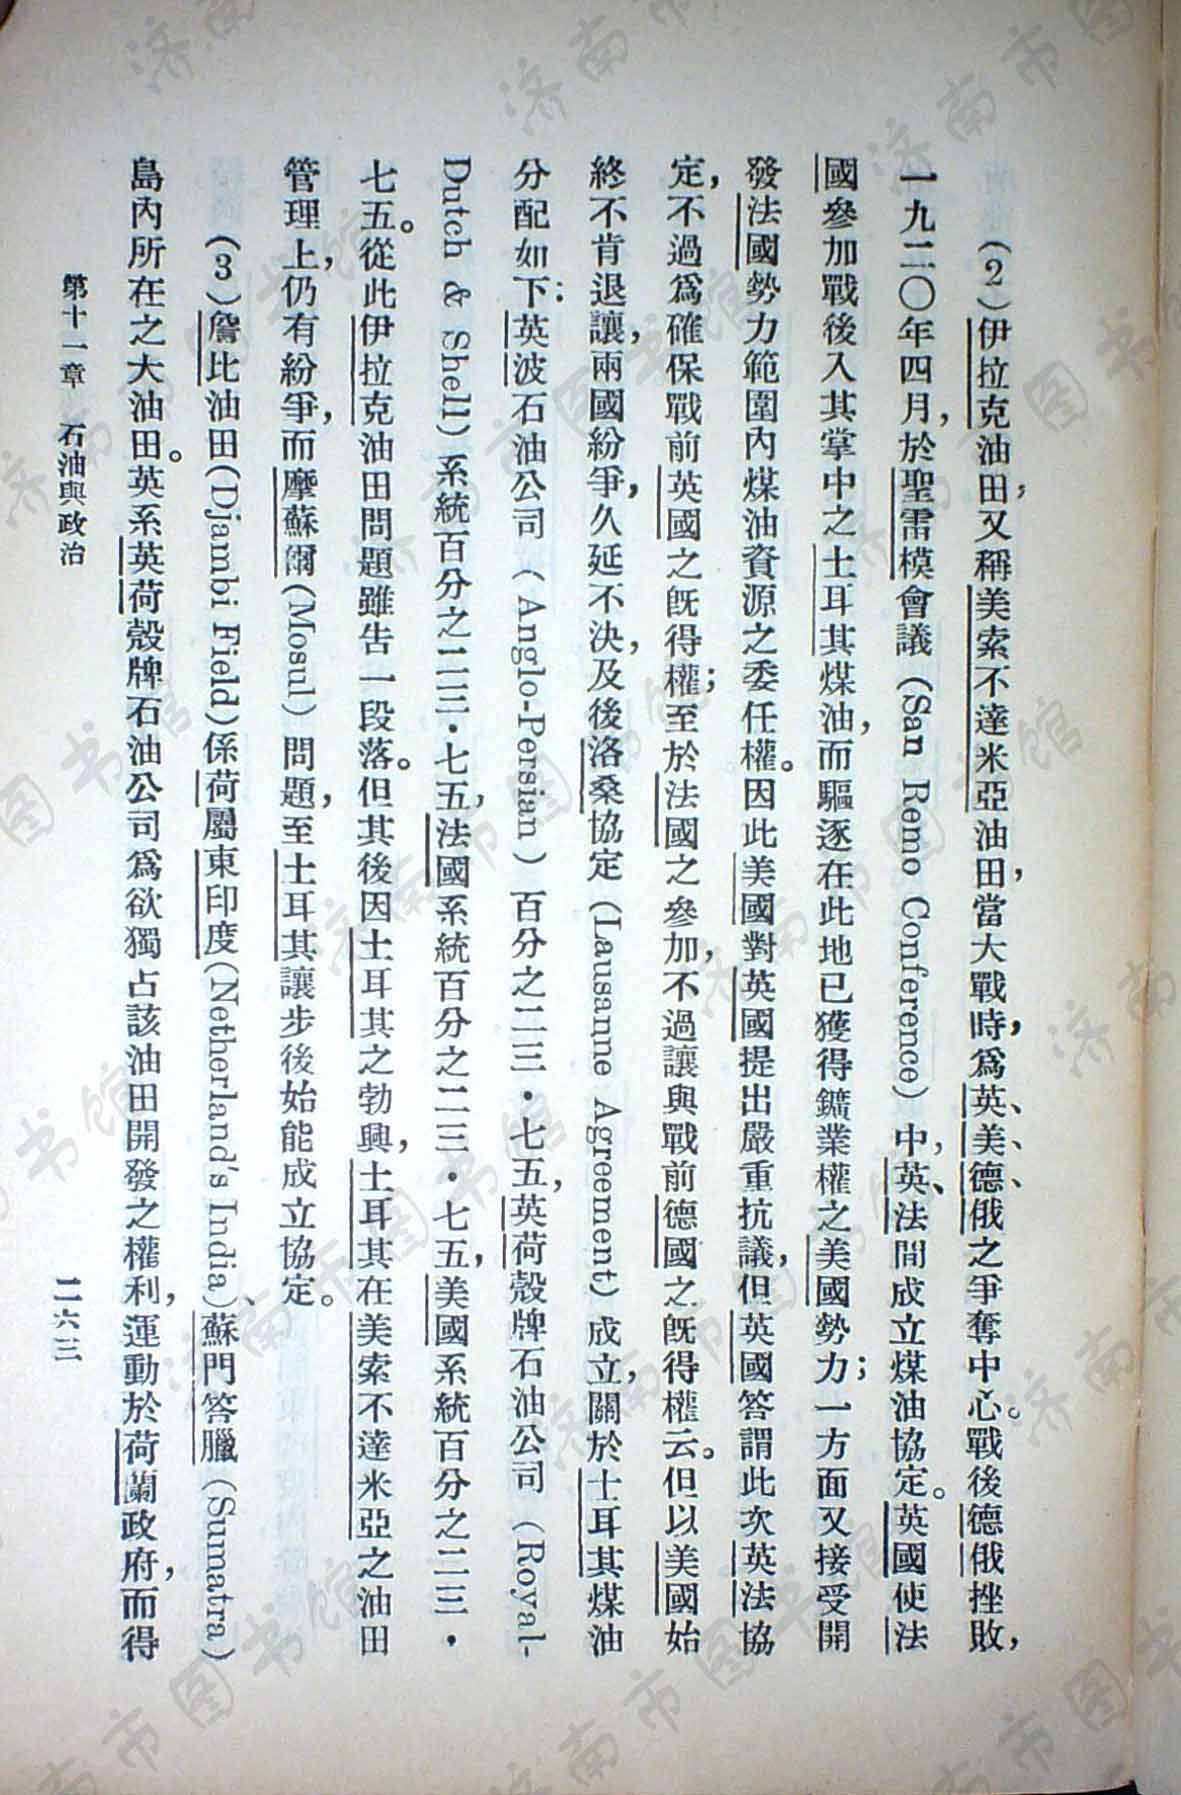 （2）伊拉克油田，又稱美索不達米亞油田，當大戰時，爲英、美、德、俄之爭奪中心。戰後德俄挫敗，
一九二〇年四月，於聖雷模會議（San Remo Conference）中，英、法間成立煤油協定。英國使法
國參加戰後入其掌中之土耳其煤油，而驅逐在此地已獲得鑛業權之美國勢力；一方面又接受開
發法國勢力範圍內煤油資源之委任權。因此美國對英國提出嚴重抗議，但英國答謂此次英法協
定，不過爲確保戰前英國之旣得權；至於法國之參加，不過讓與戰前德國之旣得權云。但以美國始
終不肯退讓，兩國紛爭，久延不決，及後洛桑協定（Lausanne Agreement）成立，關於土耳其煤油
分配如下：英波石油公司（Anglo-Persian）百分之二三・七五，英荷殼牌石油公司（Royal-
Dutch & Shell）系統百分之二三・七五，法國系統百分之二三・七五，美國系統百分之二三・
七五。從此伊拉克油田問題雖告一段落。但其後因土耳其之勃興，土耳其在美索不達米亞之油田
管理上，仍有紛爭，而摩蘇爾（Mosul）問題，至土耳其讓步後始能成立協定。
（3）詹比油田（Djambi Field）係荷屬東印度（Netherland's India）、蘇門答臘（Sumatra）
島內所在之大油田。英系英荷殼牌石油公司爲欲獨占該油田開發之權利，運動於荷蘭政府，而得
第十一章 石油與政治
二六三
济南市图书馆